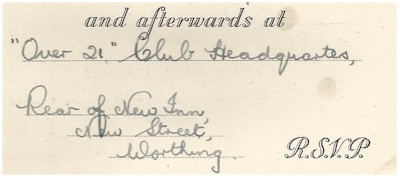 and afterwards at
"Over 21," Club Headquartes,
Rear of New Inn,
New Street,
Worthing.
R.S.V.P.